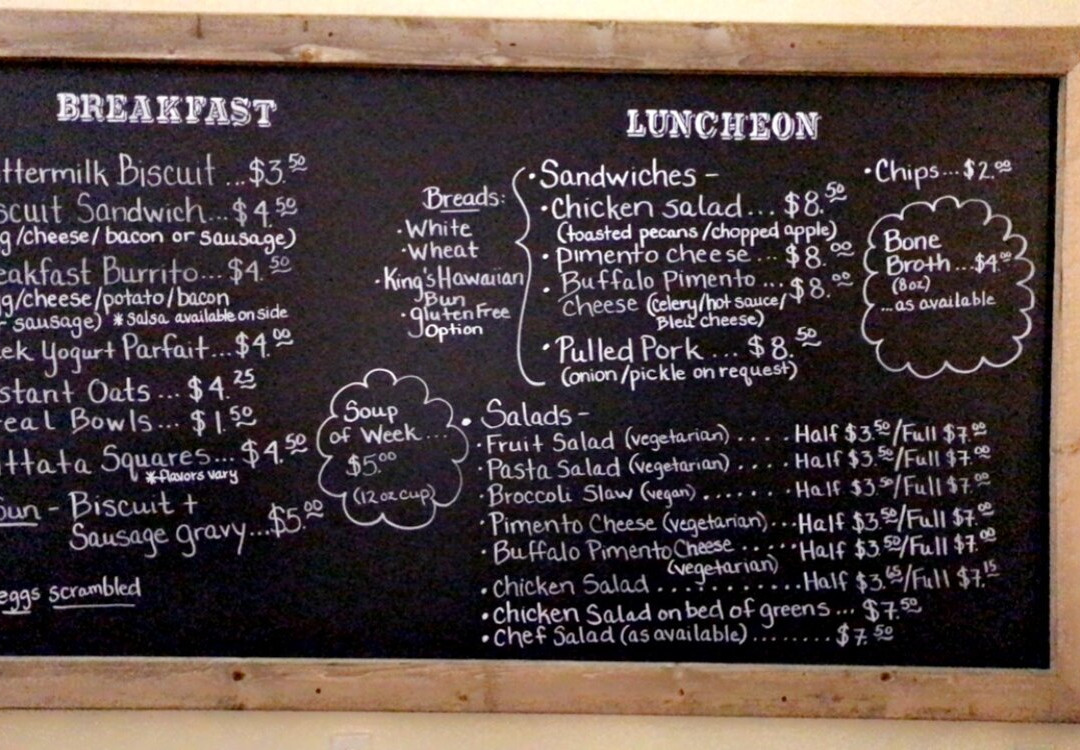 BREAKFAST
ttermilk Biscuit ... $3.50
scuit Sandwich... $4.50
g/cheese/bacon or sausage)
eakfast Burrito... $4.50
gg/cheese/potato/bacon
r sausage) *salsa available on side
ek Yogurt Parfait... $4.00
stant Oats ... $4.25
real Bowls... $1.50
ittata Squares... $4.50
*flavors vary
Sun - Biscuit +
Sausage gravy... $5.00
eggs scrambled
Soup
of Week....
$5.00
(12 oz cup)
LUNCHEON
Breads:
•White
•Wheat
•King's Hawaiian
Bun
•gluten Free
Option
•Sandwiches -
•Chicken salad... $8.50
(toasted pecans/chopped apple)
•pimento cheese ... $8.00
•Buffalo Pimento ... $8.00
cheese (celery/hot sauce/
Bleu cheese)
•Pulled Pork ... $8.50
(onion/pickle on request)
•Chips... $2.00
Bone
Broth... $4.00
(8oz)
...as available
•Salads -
•Fruit Salad (vegetarian) .... Half $3.50/Full $7.00
•Pasta Salad (vegetarian) .... Half $3.50/Full $7.00
•Broccoli Slaw (vegan) ....... Half $3.50/Full $7.00
•Pimento Cheese (vegetarian)... Half $3.50/Full $7.00
•Buffalo Pimento Cheese ...... Half $3.50/Full $7.00
(vegetarian)
•Chicken Salad .......... Half $3.65/Full $7.15
•Chicken Salad on bed of greens ... $7.50
•Chef Salad (as available) ........ $7.50